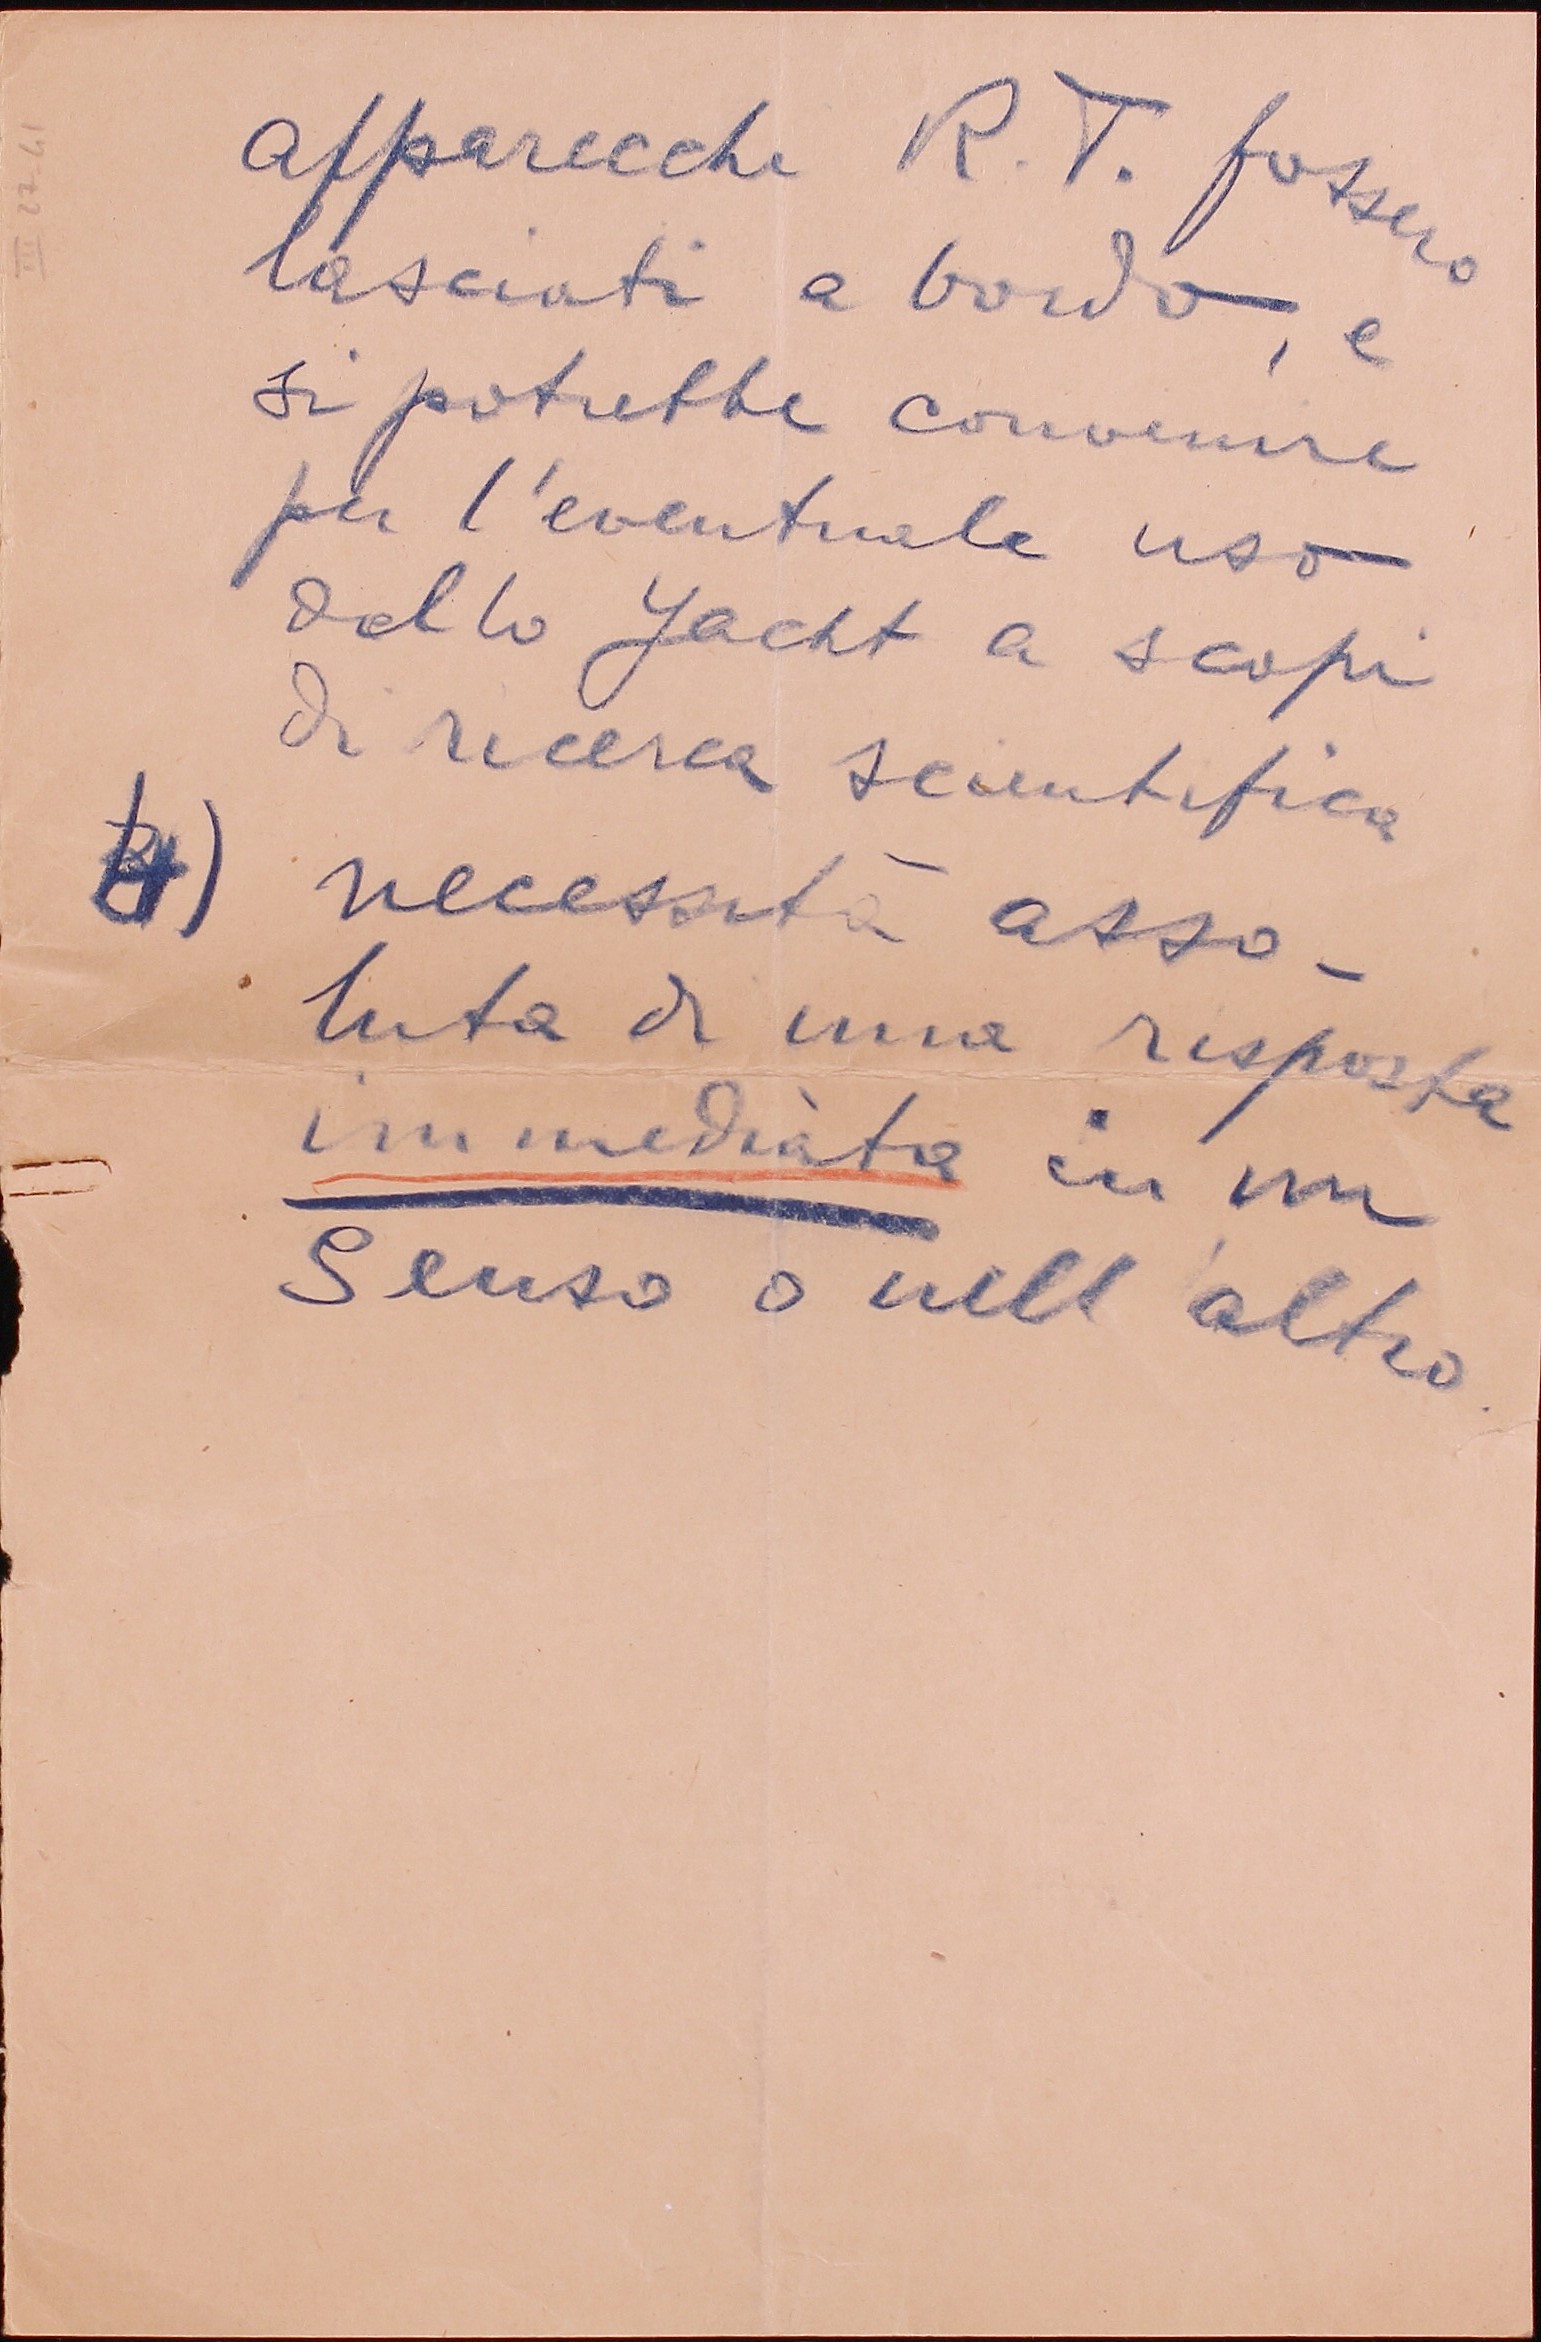 apparecchi R.T. fossero
lasciati a bordo, e
si potrebbe convenire
per l'eventuale uso
dello Yacht a scopi
di ricerca scientifica
4) necessità asso-
luta di una risposta
immediata in un
senso o nell'altro.